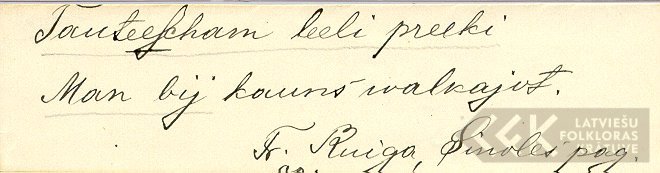 Tauteescham leeli preeki
Man bij kauns walkajot.
Fr. Ruiga, Sinoles pag.
LATVIEŠU
FOLKLORAS
KRĀTUVE